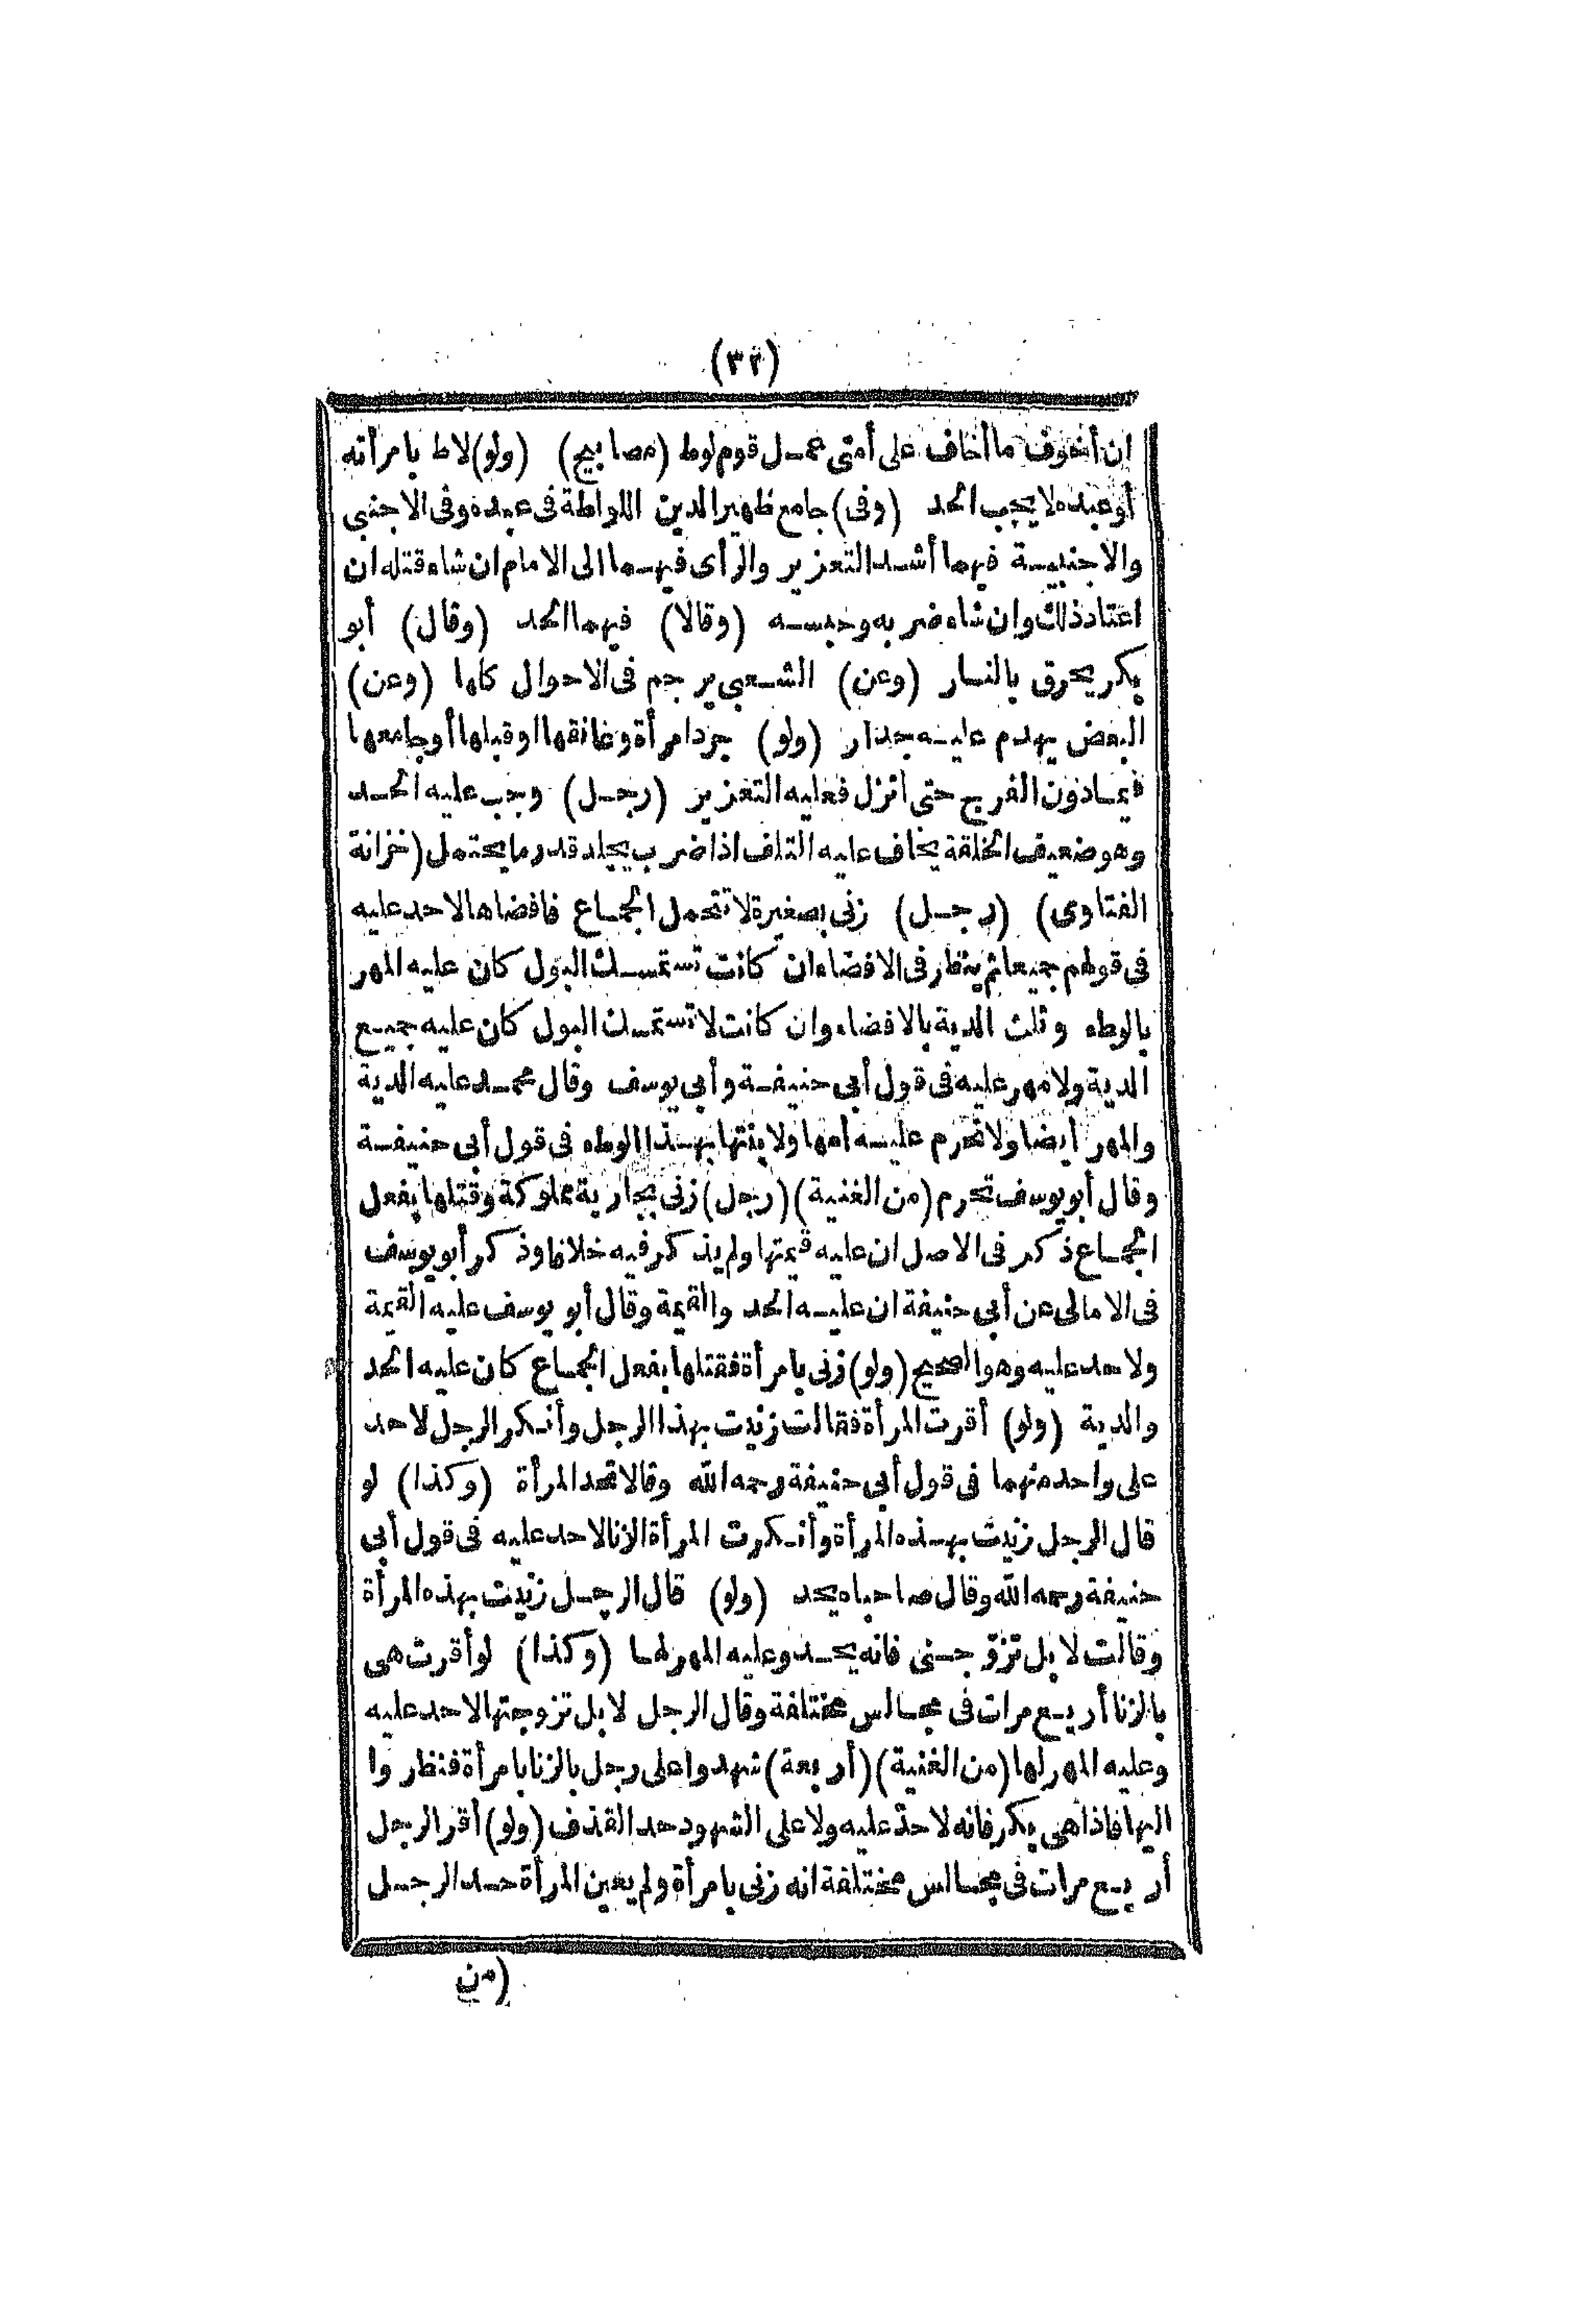 (٣٢)
ان أخوف ما أخاف على أمتى عمل قوم لوط (مصابيح) (ولو) لاط بامرأته
أو عبده لا يجب الحد (وفى) جامع ظهير الدين اللواطة فى عبده وفى الاجنبى
والاجنبية فيهما أشد التعزير والرأى فيهما الى الامام ان شاء قتله ان
اعتاد ذلك وان شاء ضربه وحبسه (وقالا) فيهما الحد (وقال) أبو
بكر يحرق بالنار (وعن) الشعبى يرجم فى الاحوال كلها (وعن)
البعض يهدم عليه جدار (ولو) جردامرأة وعانقها او قبلها أو جامعها
فيمادون الفرج حتى أنزل فعليه التعزير (رجل) وجب عليه الحد
وهو ضعيف الخلقة يخاف عليه التلف اذا ضرب يجلد قدر ما يحتمل (خزانة
الفتاوى) (رجل) زنى بصغيرة لا تتحمل الجماع فافضاها لاحد عليه
فى قولهم جميعا ثم ينظر فى الافضاء ان كانت تستمسك البول كان عليه المهر
بالوطء وثلث الدية بالافضاء وان كانت لا تستمسك البول كان عليه جميع
الدية ولا مهر عليه فى قول أبى حنيفة وأبى يوسف وقال محمد عليه الدية
والمهر أيضا ولا تحرم عليه أمها ولا بنتها بهذا الوطء فى قول أبى حنيفة
وقال أبو يوسف تحرم (من الغنية) (رجل) زنى بجارية مملوكة وقتلها بفعل
الجماع ذكر فى الاصل ان عليه قيمتها ولم يذكر فيه خلافا وذكر أبو يوسف
فى الامالى عن أبى حنيفة ان عليه الحد والقيمة وقال أبو يوسف عليه القيمة
ولا حد عليه وهو الصحيح (ولو) زنى بامرأة فقتلها بفعل الجماع كان عليه الحد
والدية (ولو) أقرت المرأة فقالت زنيت بهذا الرجل وأنكر الرجل لاحد
على واحد منهما فى قول أبى حنيفة رحمه الله وقالا تحد المرأة (وكذا) لو
قال الرجل زنيت بهذه المرأة وأنكرت المرأة الزنا لاحد عليه فى قول أبى
حنيفة رحمه الله وقال صاحباه يحد (ولو) قال الرجل زنيت بهذه المرأة
وقالت لا بل تزوّجنى فانه يحد وعليه المهر لها (وكذا) لو أقرت هى
بالزنا أربع مرات فى مجالس مختلفة وقال الرجل لا بل تزوجتها لاحد عليه
وعليه المهر لها (من الغنية) (أربعة) شهدوا على رجل بالزنا بامرأة فنظروا
اليها فاذا هى بكر فانه لا حدّ عليه ولا على الشهود حد القذف (ولو) أقر الرجل
أربع مرات فى مجالس مختلفة انه زنى بامرأة ولم يعين المرأة حد الرجل
(من